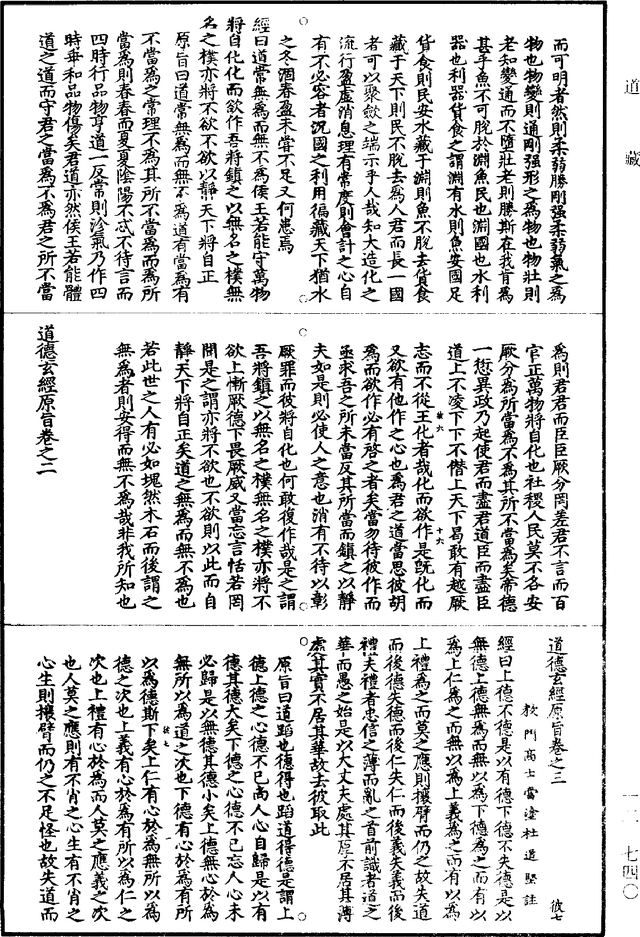 道藏
而可明者然則柔弱勝剛强柔弱氣之爲
物也物變則通剛强形之爲物也物壯則
老知變通而不墮壯老則勝斯在我肯爲
甚乎魚不可脫於淵魚民也淵國也水利
器也利器貨食之謂淵有水則魚安國足
貨食則民安水藏于淵則魚不脫去貨食
藏于天下則民不脫去爲人君而長一國
者可以聚歛之端示乎人哉知大造化之
流行盈虛消息理有常度則會計之心自
有不必容者沉國之利用徧藏天下猶水
之冬涸春盈未甞不足又何患焉
經曰道常無爲而無不爲侯王若能守萬物
將自化化而欲作吾將鎮之以無名之樸無
名之樸亦將不欲不欲以靜天下將自正
原旨曰道常無爲而無不爲道有當爲有
不當爲之常理不爲其所不當爲而爲所
當爲則春春而夏夏陰陽不忒不待言而
四時行品物亨道一反常則沴氣乃作四
時乖和品物傷矣君道亦然侯王若能體
道之道而守君之當爲不爲君之所不當
爲則君君而臣臣厥分罔差君不言而百
官正萬物將自化也社稷人民莫不各安
厥分爲所當爲不爲其所不當爲矣帝德
一愆異政乃起使君而盡君道臣而盡臣
道上不凌下下不僣上天下曷敢有越厥
志而不從王化者哉化而欲作是旣化而
又欲有他作之心也爲君之道當思彼胡
爲而欲作必有啓之者矣當勿待彼作而
亟求吾之所未當反其所當而鎮之以靜
夫如是則必使人之意也消有不待以彰
厥罪而彼將自化也何敢復作哉是之謂
吾將鎮之以無名之樸無名之樸亦將不
欲上慚厥德下畏厥威又當忘言恬若罔
聞是之謂亦將不欲也不欲則以此而自
靜天下將自正矣道之無爲而無不爲也
若此世之人有必如塊然木石而後謂之
無爲者則安得而無不爲哉非我所知也
道德玄經原旨卷之二
道德玄經原旨卷之三
彼七
教門高士當塗杜道堅註
經曰上德不德是以有德下德不失德是以
無德上德無爲而無以爲下德爲之而有以
爲上仁爲之而無以爲上義爲之而有以爲
上禮爲之而莫之應則攘臂而仍之故失道
而後德失德而後仁失仁而後義失義而後
禮夫禮者忠信之薄而亂之首前識者道之
華而愚之始是以大丈夫處其厚不居其薄
處其實不居其華故去彼取此
原旨曰道蹈也德得也蹈道得德是謂上
德上德之心德不已高人心自歸是以有
德其德大矣下德之心德不已忘人心未
必歸是以無德其德小矣上德無心於爲
無所以爲道之次也下德有心於爲有所
以爲德斯下矣上仁有心於爲無所以爲
德之次也上義有心於爲有所以爲仁之
次也上禮有心於爲而人莫之應義之次
也人莫之應則有不肖之心生有不肖之
心生則攘臂而仍之不足怪也故失道而
一二七四〇